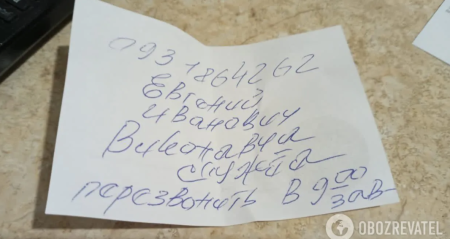 0931864262
Евгений
Иванович
Виконавча
служба
перезвонить в 9 00
зав
OBOZREVATEL